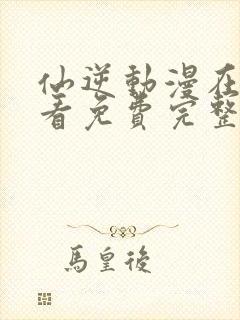 仙逆動漫在
看免費完整
馬皇後